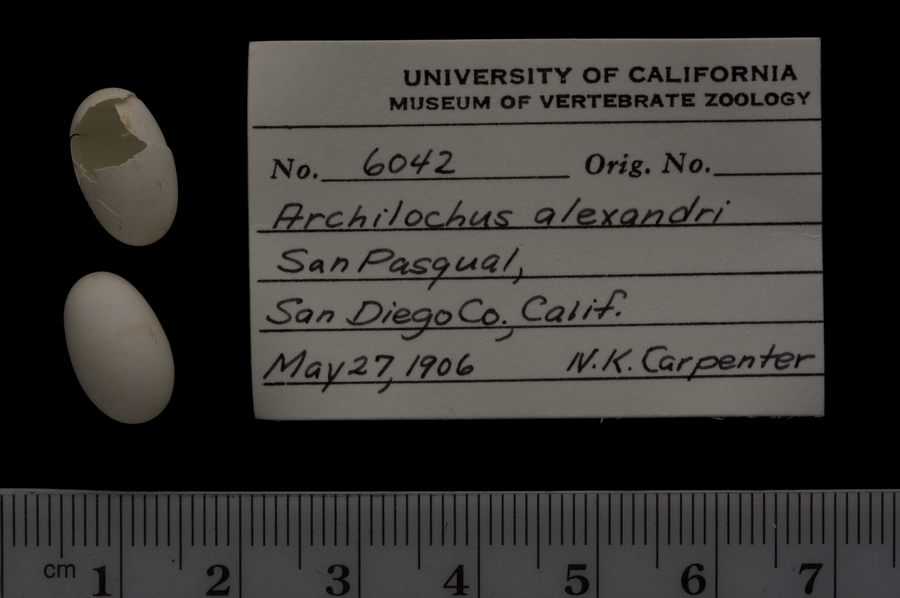 UNIVERSITY OF CALIFORNIA
MUSEUM OF VERTEBRATE ZOOLOGY
No. 6042 Orig. No.
Archilochus alexandri
San Pasqual,
San Diego Co., Calif.
May 27, 1906 N.K. Carpenter
cm 1 2 3 4 5 6 7